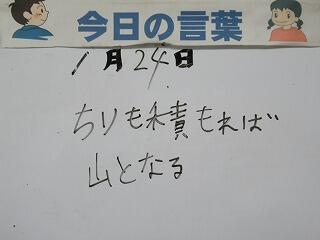 今日の言葉
1月24日
ちりも積もれば
山となる